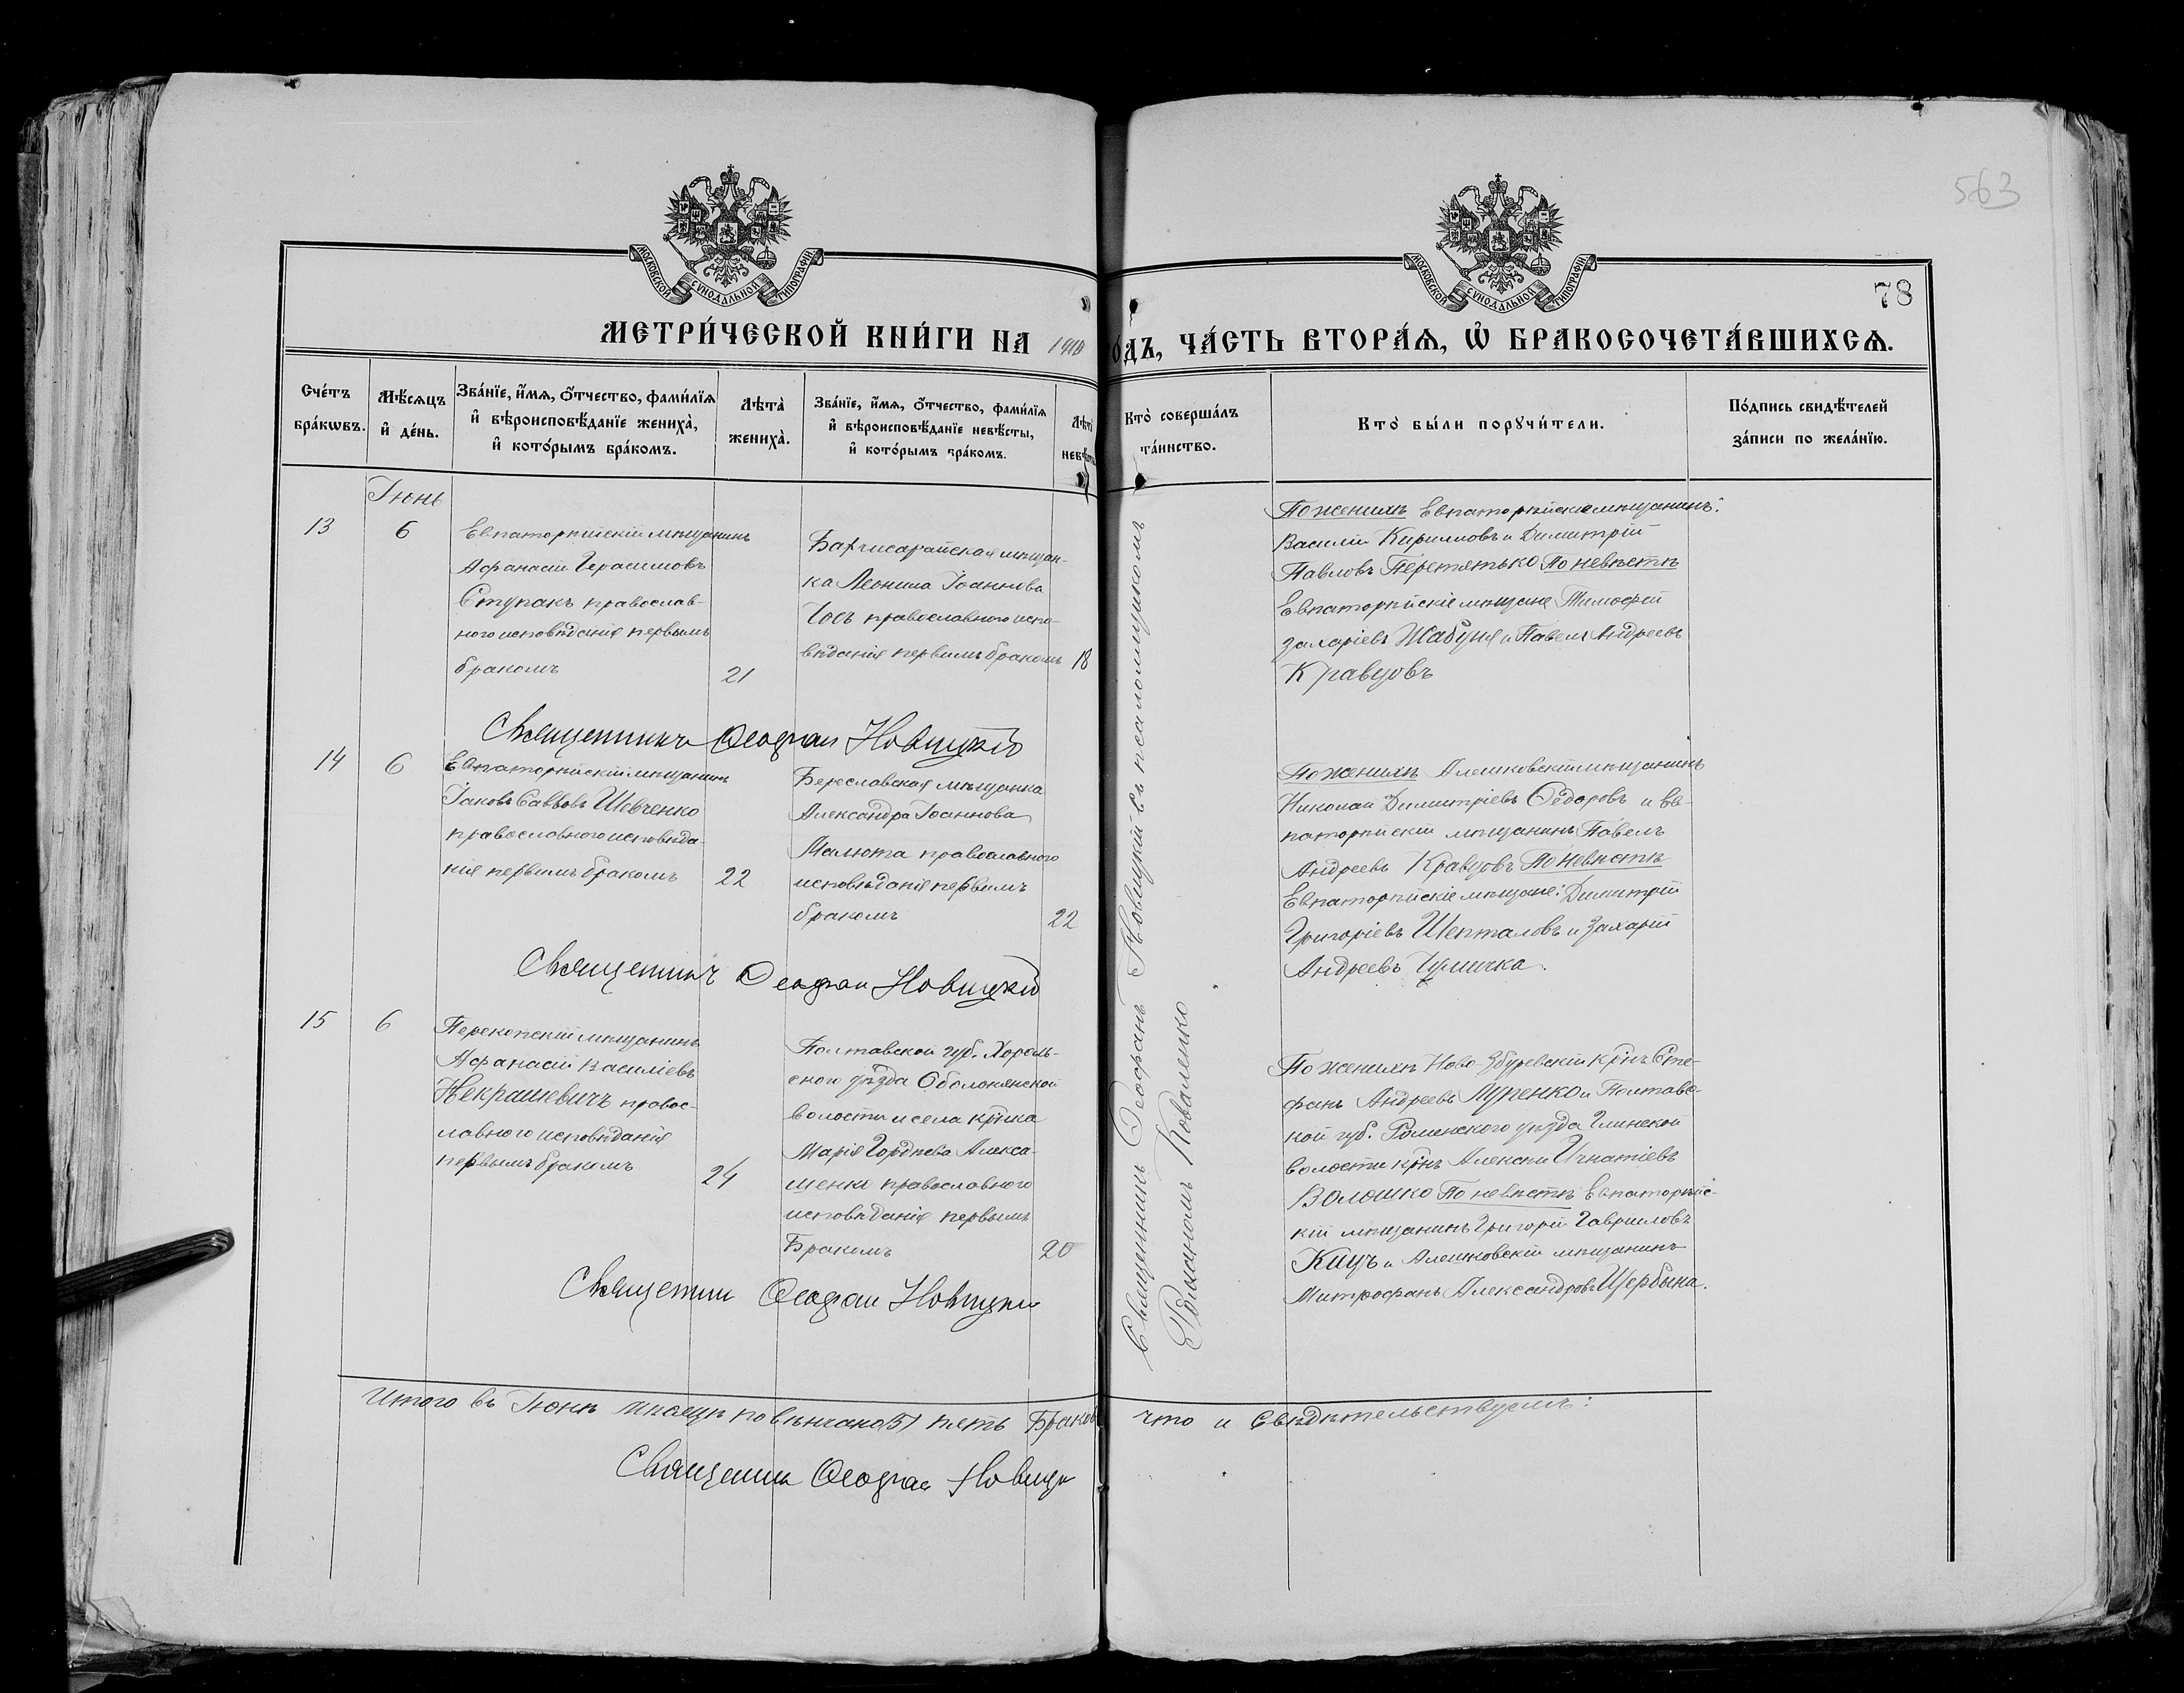 563
78
МОСКОВСКОЙ СѴНОДАЛЬНОЙ ТИПОГРАФІИ
МОСКОВСКОЙ СѴНОДАЛЬНОЙ ТИПОГРАФІИ
МЕТРИ́ЧЕСКОЙ КНИ́ГИ НА 1910 ГО́ДЪ, ЧА́СТЬ ВТОРА́Ѧ, Ѿ БРАКОСОЧЕТА́ВШИХСѦ.
Сче́тъ бра́кѡвъ.
Мѣ́сѧцъ и҆ де́нь.
Зва́нїе, и҆́мѧ, ѻ҆́тчество, фами́лїѧ и҆ вѣроисповѣ́данїе жениха̀, и҆ кото́рымъ бра́комъ.
Лѣта̀ жениха̀.
Зва́нїе, и҆́мѧ, ѻ҆́тчество, фами́лїѧ и҆ вѣроисповѣ́данїе невѣ́сты, и҆ кото́рымъ бра́комъ.
Лѣта̀ невѣ́сты
Кто̀ соверша́лъ та́инство.
Кто̀ бы́ли порꙋчи́тели.
По́дпись свидѣ́телей за́писи по жела́нїю.
Іюнь
13
6
Евпаторійскій мѣщанинъ
Афанасій Герасимовъ
Ступакъ православ-
ного исповѣданія первымъ
бракомъ
21
Бахчисарайская мѣщан-
ка Леонила Іоаннова
православного испо-
вѣданія первымъ бракомъ
18
По женихѣ Евпаторійскіе мѣщанинъ:
Василій Кирилловъ и Димитрій
Павловъ Перетятько По невѣстѣ
Евпаторійскіе мѣщане Тимофей
Захаріевъ Жабуня и Павелъ Андреевъ
Кравцовъ
Священникъ Ѳеофан Новицкій
14
6
Евпаторійскій мѣщанинъ
Іаковъ Саввовъ Шевченко
православного исповѣда-
нія первымъ бракомъ
22
Береславская мѣщанка
Александра Іоаннова
Малюта православного
исповѣданія первымъ
бракомъ
22
По женихѣ Алешковскій мѣщанинъ
Николай Димитріевъ Ѳедоровъ и Ев-
паторійскій мѣщанинъ Павелъ
Андреевъ Кравцовъ По невѣстѣ
Евпаторійскіе мѣщане: Димитрій
Григоріевъ Шепталовъ и Захарій
Андреевъ
Священник Ѳеофан Новицкій
15
6
Перекопскій мѣщанинъ
Афанасій Василіевъ
Некрашевичъ правос-
лавного исповѣданія
первымъ бракомъ
24
Полтавской губ. Хороль-
ского уѣзда Оболонянской
волости и села кр-нка
Марія Гордѣева Алекса-
щенко православного
исповѣданія первымъ
Бракомъ
20
По женихѣ Ново Збурьевскій кр-нъ Сте-
фанъ Андреевъ Луценко и Полтавс-
кой губ. Роменского уѣзда Глинской
волости кр-нъ Алексѣй Игнатіевъ
Волошко По невѣстѣ Евпаторійс-
кій мѣщанинъ Григорій Гавриловъ
Кацъ и Алешковскій мѣщанинъ
Митрофанъ Александровъ Щербина.
Священник Ѳеофан Новицкій
Священникъ Ѳеофанъ Новицкій съ псаломщикомъ
Романомъ Коваленко
Итого въ Іюнѣ мѣсяцѣ повѣнчано (5) пять Браковъ что и свидѣтельствуемъ:
Священник Ѳеофан Новицк